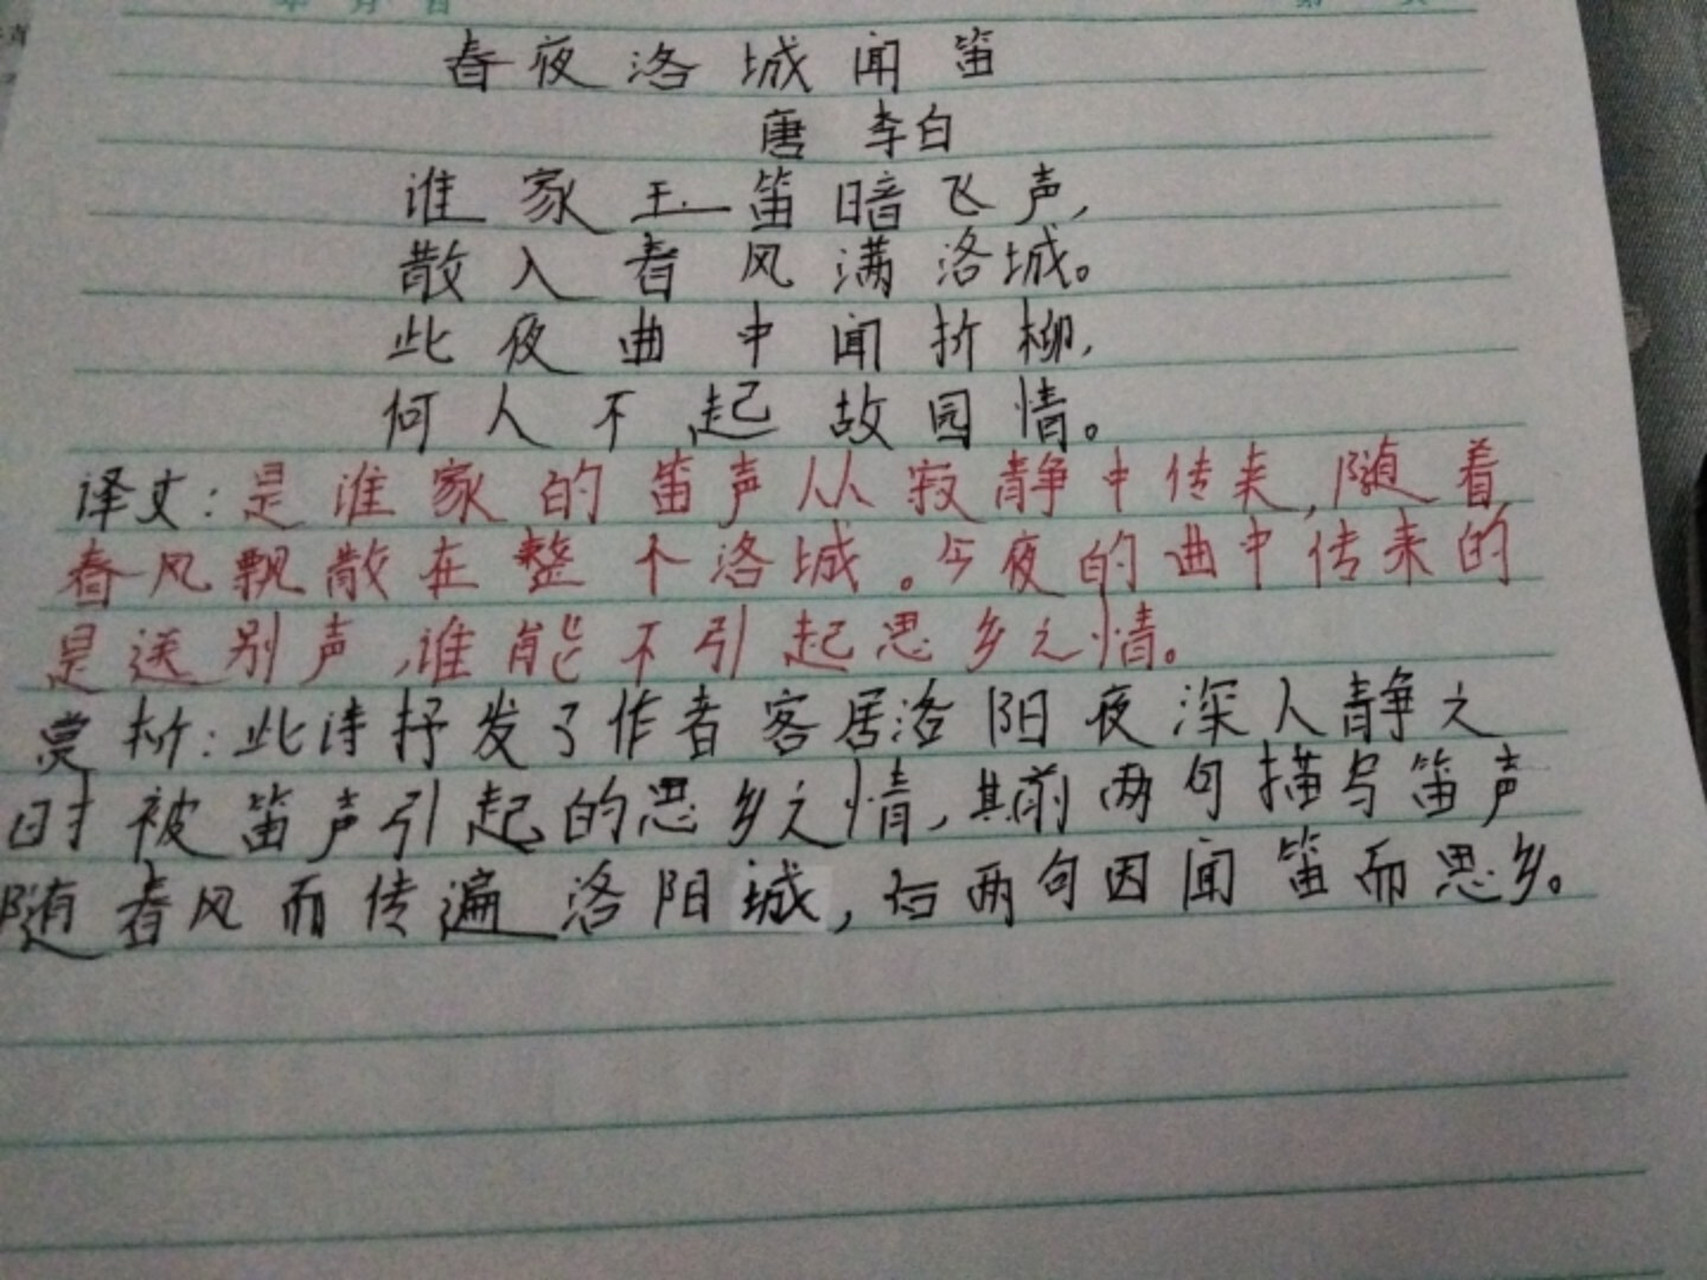 年 月 日 第 页
春夜洛城闻笛
唐 李白
谁家玉笛暗飞声,
散入春风满洛城。
此夜曲中闻折柳,
何人不起故园情。
译文:是谁家的笛声从寂静中传来,随着
春风飘散在整个洛城。今夜的曲中传来的
是送别声,谁能不引起思乡之情。
赏析:此诗抒发了作者客居洛阳夜深人静之
时被笛声引起的思乡之情,其前两句描写笛声
随春风而传遍洛阳城,后两句因闻笛而思乡。